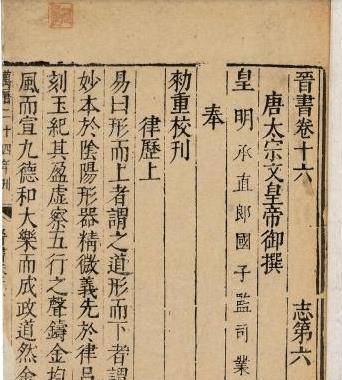 晉書卷十六 志第六
唐太宗文皇帝御撰
皇明承直郎國子監司業
奉
勑重校刊
律歷上
易曰形而上者謂之道形而下者謂
妙本於陰陽形器精微義先於律呂
刻玉紀其盈虛察五行之聲鑄金均
風而宣九德和大樂而成政道然金
萬曆二十四年刊